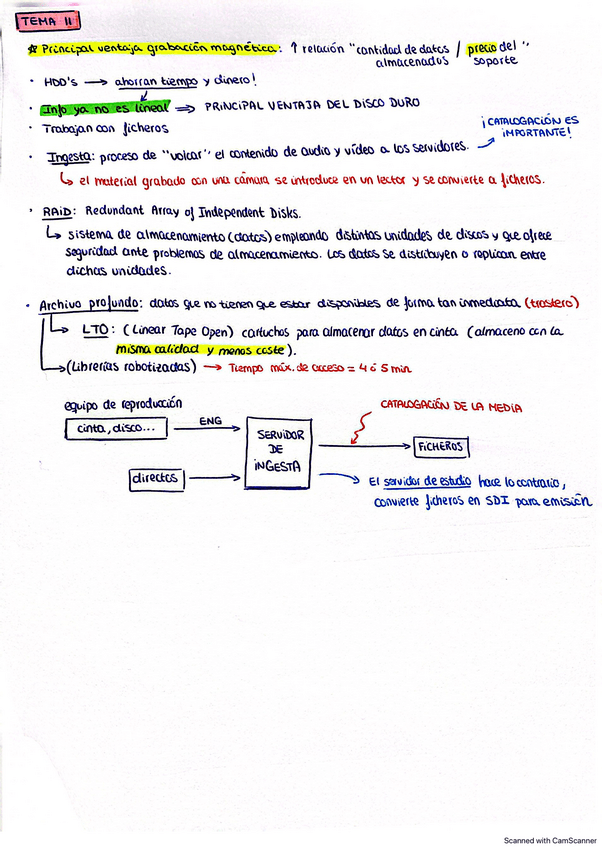 TEMA 11
☆ Principal ventaja grabación magnética: ↑ relación "cantidad de datos / precio del "
almacenados soporte
· HDD's → ahorran tiempo y dinero!
· Info ya no es lineal ⇒ PRINCIPAL VENTAJA DEL DISCO DURO
· Trabajan con ficheros
¡CATALOGACIÓN ES
IMPORTANTE!
· Ingesta: proceso de "volcar" el contenido de audio y vídeo a los servidores.
↳ el material grabado con una cámara se introduce en un lector y se convierte a ficheros.
· RAID: Redundant Array of Independent Disks.
↳ sistema de almacenamiento (datos) empleando distintas unidades de discos y que ofrece
seguridad ante problemas de almacenamiento. Los datos se distribuyen o replican entre
dichas unidades.
· Archivo profundo: datos que no tienen que estar disponibles de forma tan inmediata (trastero)
↳ LTO: (Linear Tape Open) cartuchos para almacenar datos en cinta (almaceno con la
misma calidad y menos coste).
→ (Librerías robotizadas) → Tiempo máx. de acceso = 4 ó 5 min
equipo de reproducción
cinta, disco...
ENG
SERVIDOR
DE
INGESTA
CATALOGACIÓN DE LA MEDIA
FICHEROS
directos
El servidor de estudio hace lo contrario,
convierte ficheros en SDI para emisión
Scanned with CamScanner